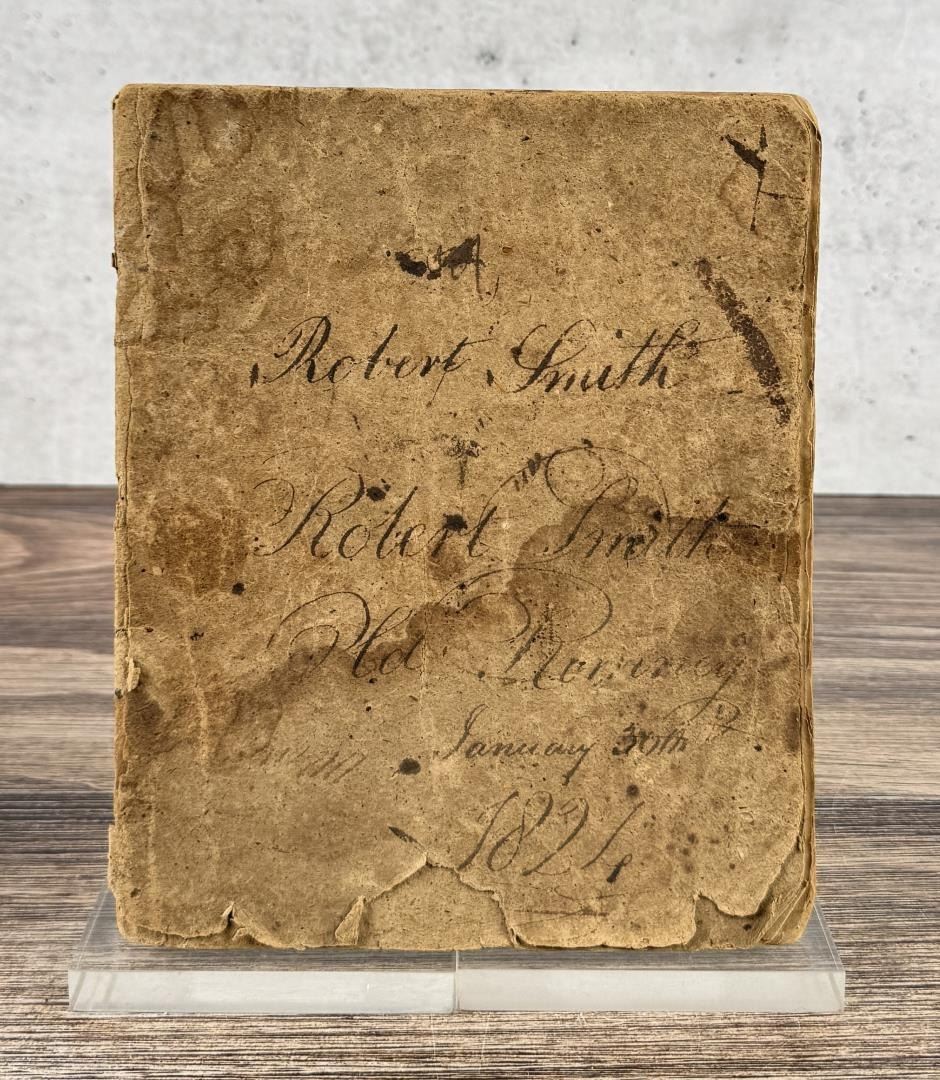 Robert Smith
Robert Smith
Old Romney
January 30th
1824